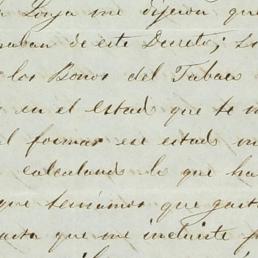 Lonja me dijeron que
de este Decreto; 
los Bonos del Tabaco
en el estado que te
formar ese estado
calculando lo que ha
que teniamos que gast
que me incluiste